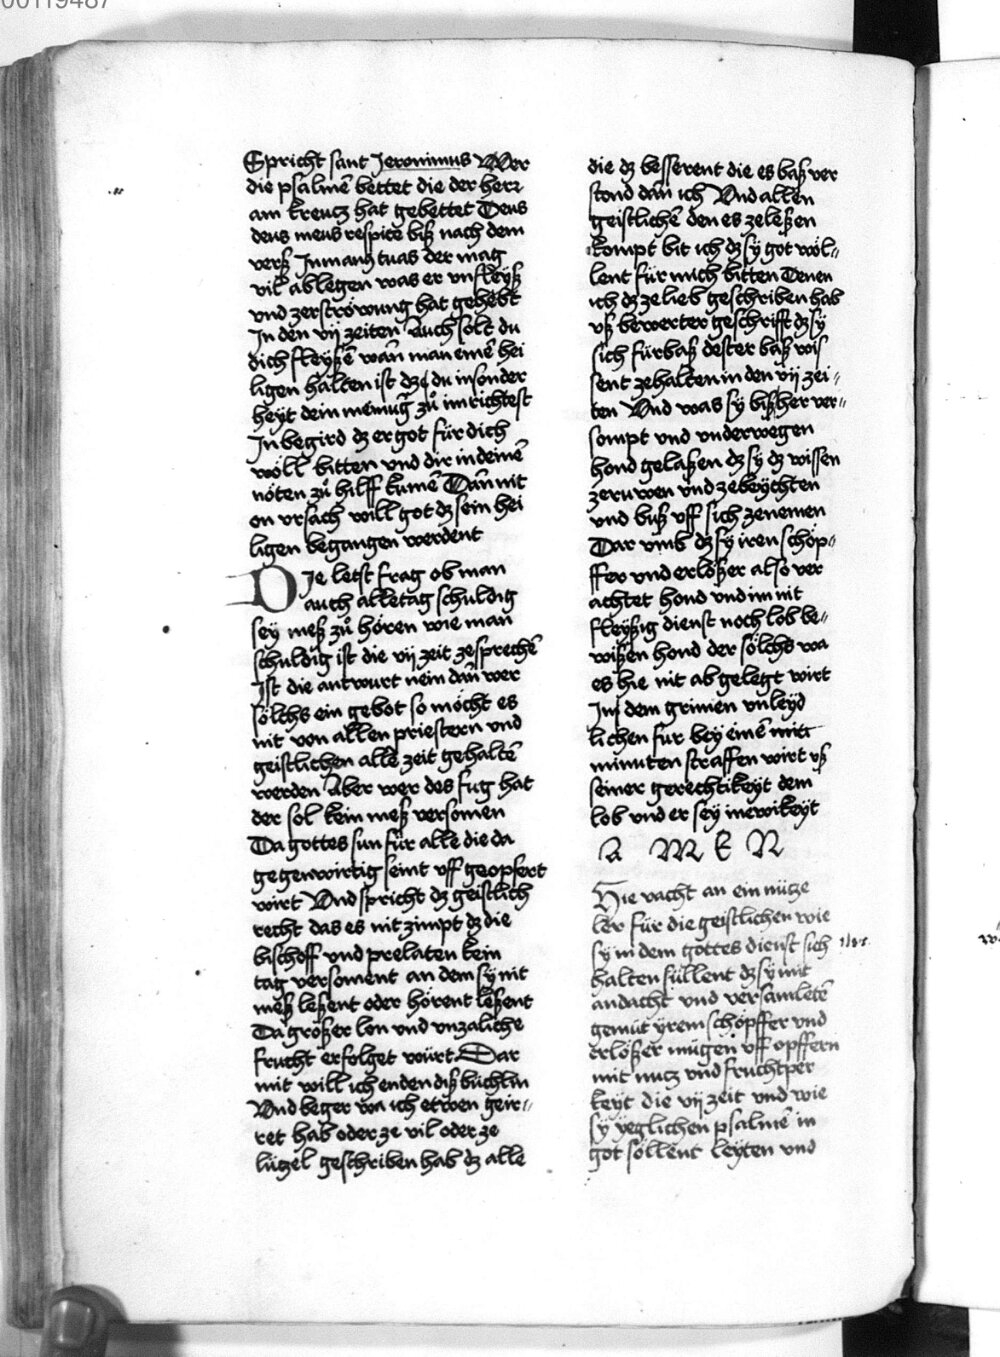 00119487
Spricht sant Jeronimus Wer
die psalmē bettet die der herr
am kreutz hat gebettet Deus
deus meus respice biß nach dem
verß In manꝰ tuas der mag
vil ablegen was er vnfleyß
vnd zerströwung hat gehebt
In den vij zeiten Auch solt du
dich fleyßē wan̄ man einē hei
ligen halten ist dz du in sonder
heyt dein meinuḡ zů im richtest
In begird dz er got für dich
wöll bitten vnd dir in deinē
nöten zů hilff kumē Dan̄ nit
on vrsach will got dz sein hei
ligen begangen werdent
Die letst frag ob man
auch alle tag schuldig
sey meß zů hören wie man
schuldig ist die vij zeit ze sprechē
Ist die antwurt nein dan̄ wer
sölchs ein gebot so möcht es
nit von allen priestern vnd
geistlichen alle zeit gehaltē
werden Aber wer des fug hat
der sol kein meß versomen
Da gottes sun für alle die da
gegenwirtig seint vff geopfert
wirt Vnd spricht dz geistlich
recht das es nit zimpt dz die
bischoff vnd prelaten kein
tag versoment an dem sy nit
meß leßent oder hörent leßent
Da größer lon vnd vnzaliche
frucht erfolget würt Dar
mit will ich enden diß büchlin
Vnd beger wa ich etwen geir⸗
ret hab oder ze vil oder ze
lützel geschriben hab dz alle
die dz besserent die es baß ver
stond dan̄ ich Vnd allen
geistlichē den es ze leßen
kompt bit ich dz sy got wöl⸗
lent für mich bitten Denen
ich dz ze lieb geschriben hab
vß bewerter geschrifft dz sy
sich fürbaß dester baß wis
sent ze halten in den vij zei⸗
ten Vnd was sy bißher ver⸗
sompt vnd vnderwegen
hond gelaßen dz sy dz wissen
ze ruwen vnd ze beychten
vnd buß vff sich ze nemen
Dar vmb dz sy iren schöp⸗
ffer vnd erlößer also ver
achtet hond vnd im nit
fleyßig dienst noch lob be⸗
wißen hond der sölchs wa
es hie nit ab gelegt wirt
In dem grimen vnleyd
lichen fur bey einē
minuten straffen wirt vß
seiner gerechtikeyt dem
lob vnd er sey in ewikeyt
A M E N
Hie vacht an ein nütze
ler für die geistlichen wie
sy in dem gottes dienst sich
halten süllent dz sy mit
andacht vnd versamletē
gemüt yrem schöpffer vnd
erlößer mügen vff opffern
mit nutz vnd fruchtper
keyt die vij zeit vnd wie
sy yeglichen psalmē in
got söllent leyten vnd